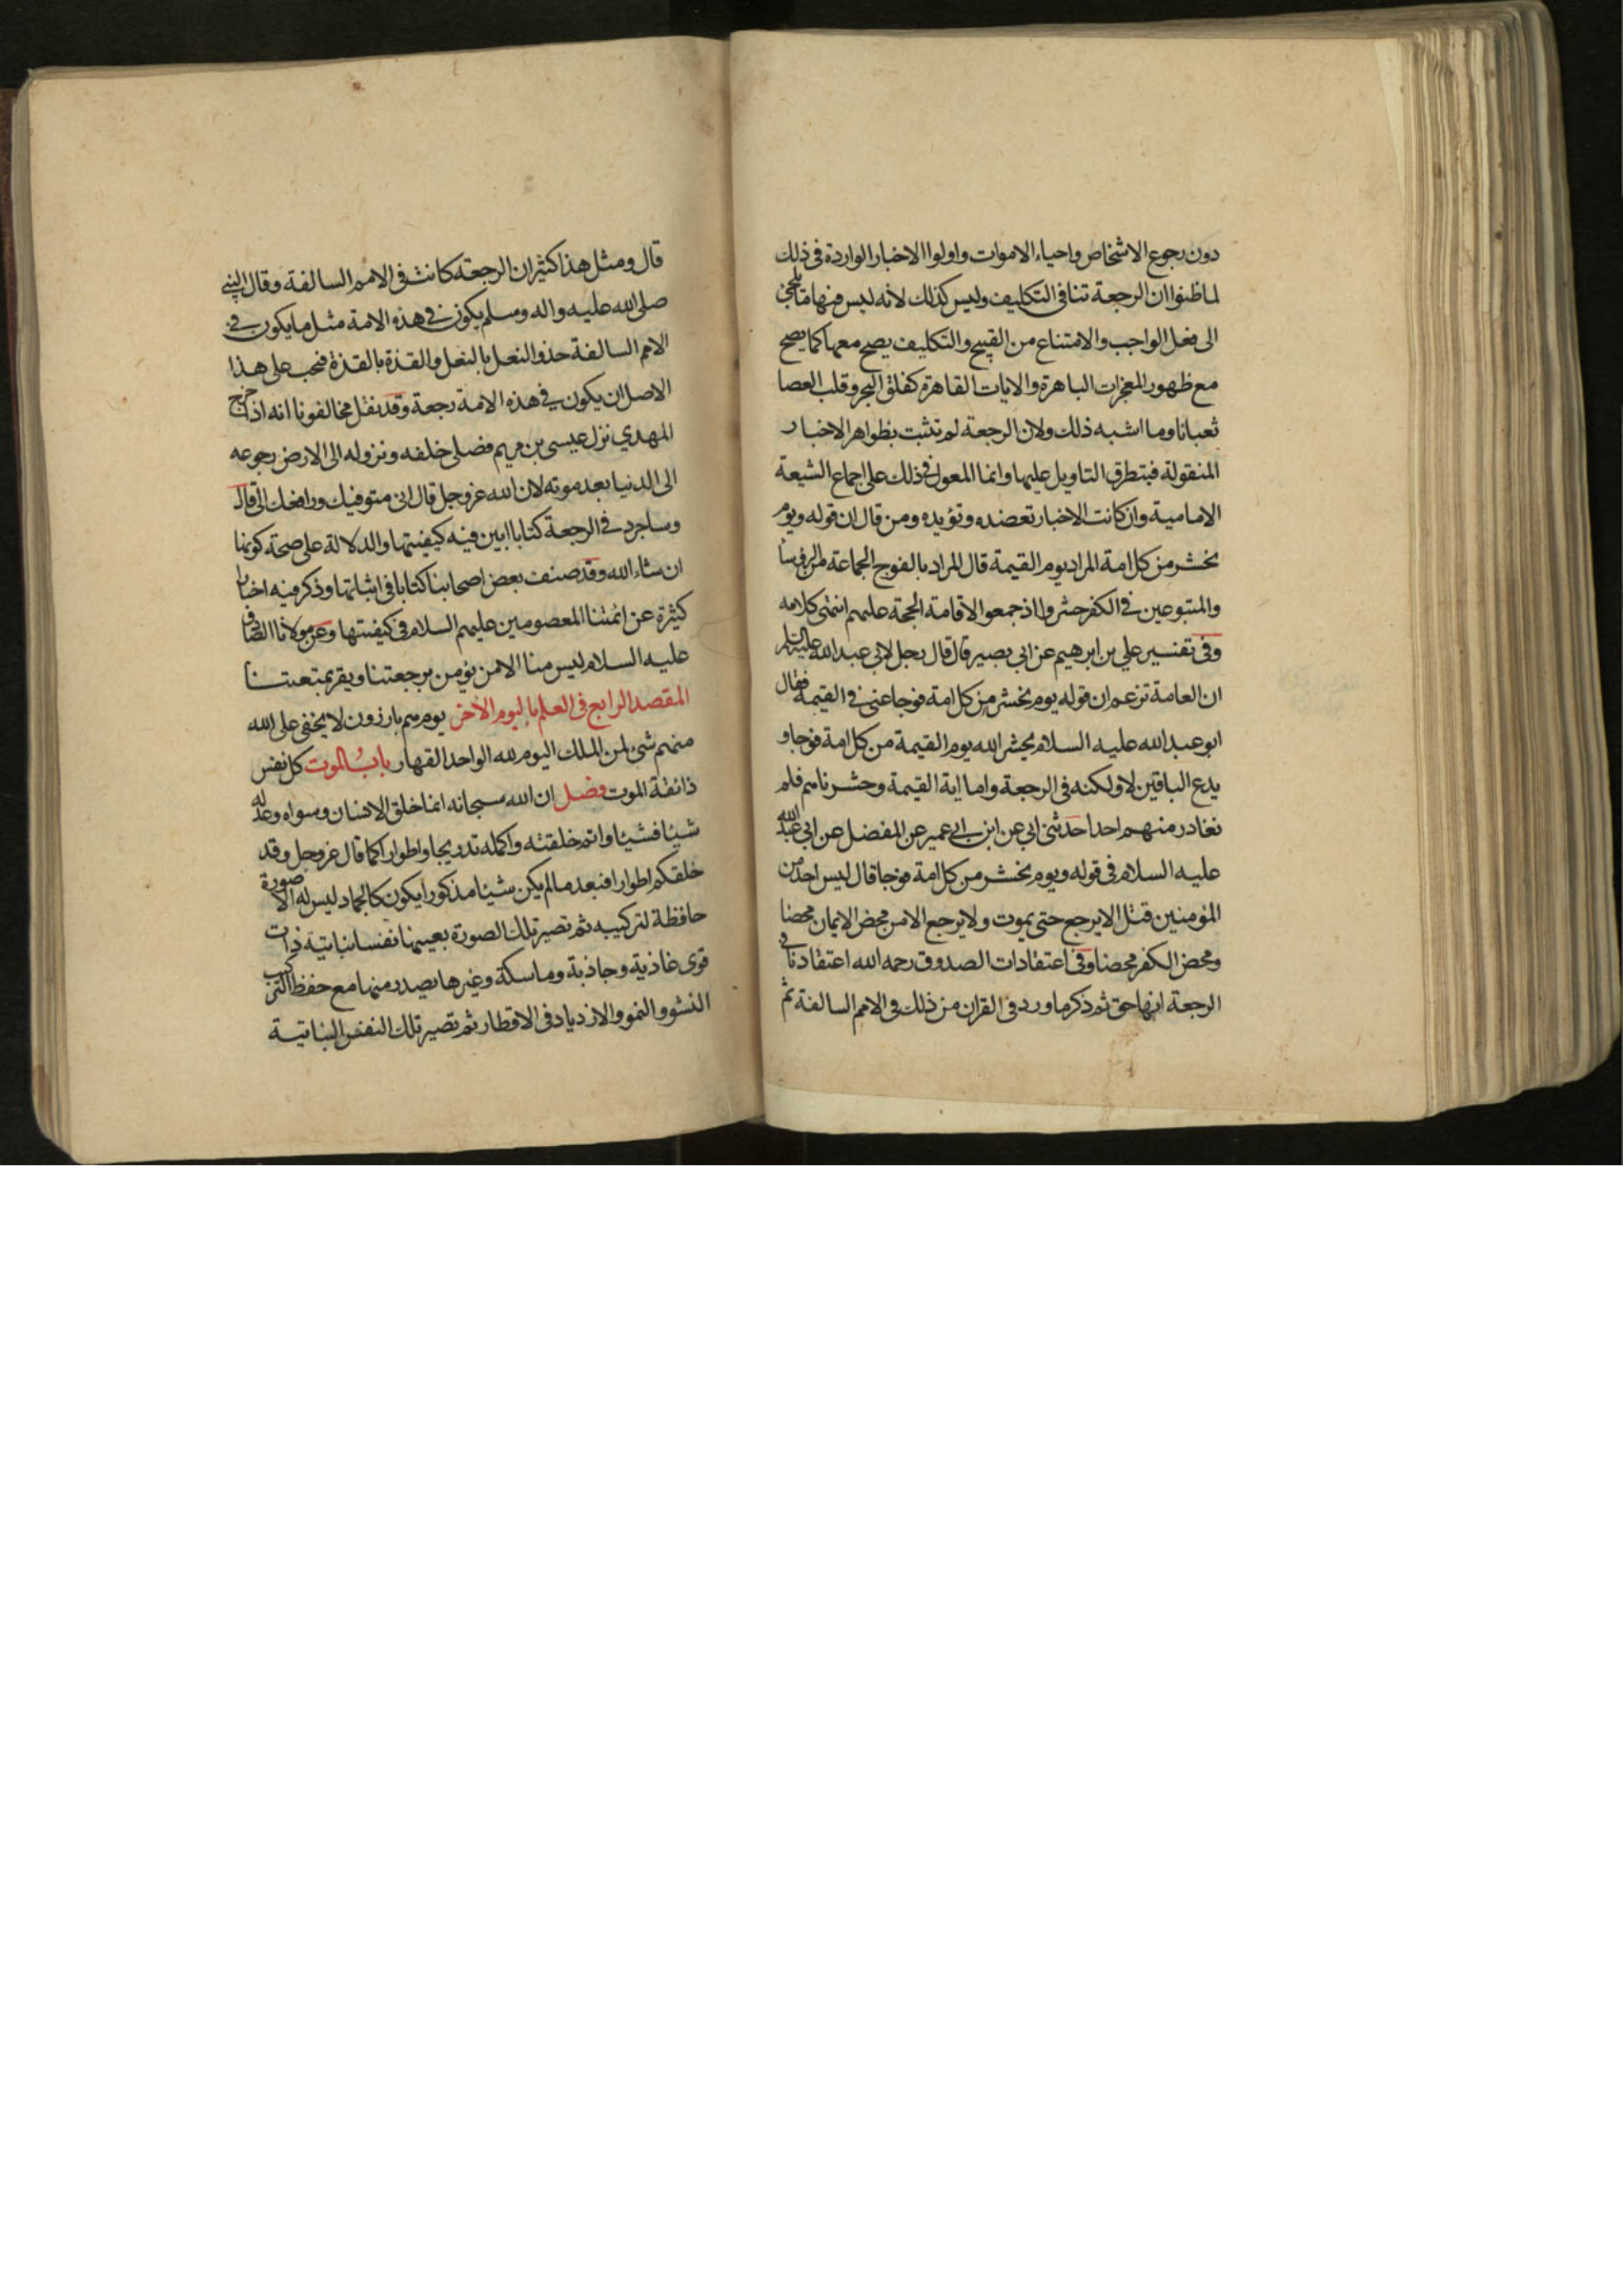 دون رجوع الاشخاص واحياء الاموات واولوا الاخبار الواردة فى ذلك
لما ظنوا ان الرجعة تنافى التكليف وليس كذلك لانه ليس فيها ما يلجئ
الى فعل الواجب والامتناع من القبيح والتكليف يصح معها كما يصح
مع ظهور المعجزات الباهرة والايات القاهرة كفلق البحر وقلب العصا
ثعبانا وما اشبه ذلك ولان الرجعة لم تثبت بظواهر الاخبار
المنقولة فيتطرق التاويل عليها وانما المعول فى ذلك على اجماع الشيعة
الامامية وان كانت الاخبار تعضده وتؤيده ومن قال ان قوله ويوم
نحشر من كل امة المراد يوم القيمة قال المراد بالفوج الجماعة من الرؤسا
والمتبوعين فى الكفر حشروا اذ جمعوا لاقامة الحجة عليهم انتهى كلامه
وفى تفسير علي بن ابرهيم عن ابي بصير قال قال رجل لابى عبد الله عليه السلم
ان العامة تزعم ان قوله يوم نحشر من كل امة فوجا عنى فى القيمة فقال
ابو عبد الله عليه السلام يحشر الله يوم القيمة من كل امة فوجا و
يدع الباقين لا ولكنه فى الرجعة واما اية القيمة وحشرناهم فلم
نغادر منهم احدا حدثنى ابي عن ابن ابي عمير عن المفضل عن ابى عبد الله
عليه السلام فى قوله ويوم نحشر من كل امة فوجا قال ليس احد من
المؤمنين قتل الا يرجع حتى يموت ولا يرجع الا من محض الايمان محضا
ومحض الكفر محضا وفى اعتقادات الصدوق رحمه الله اعتقادنا فى
الرجعة انها حق ثم ذكر ما ورد فى القران من ذلك فى الامم السالفة ثم
قال ومثل هذا كثير ان الرجعة كانت فى الامم السالفة وقال النبي
صلى الله عليه واله وسلم يكون فى هذه الامة مثل ما يكون فى
الامم السالفة حذو النعل بالنعل والقذة بالقذة فيجب على هذا
الاصل ان يكون فى هذه الامة رجعة وقد نقل مخالفونا انه اذا خرج
المهدي نزل عيسى بن مريم فصلى خلفه ونزوله الى الارض رجوعه
الى الدنيا بعد موته لان الله عز وجل قال انى متوفيك ورافعك الى قال
وساجرد فى الرجعة كتابا ابين فيه كيفيتها والدلالة على صحة كونها
ان شاء الله وقد صنف بعض اصحابنا كتابا فى اثباتها وذكر فيه اخبارا
كثيرة عن ائمتنا المعصومين عليهم السلام فى كيفيتها وعن مولانا الصادق
عليه السلام ليس منا الا من يؤمن برجعتنا ويقر بمتعتنا
المقصد الرابع فى العلم باليوم الاخر يوم هم بارزون لا يخفى على الله
منهم شئ لمن الملك اليوم لله الواحد القهار باب الموت كل نفس
ذائقة الموت فصل ان الله سبحانه انما خلق الانسان وسواه وعدله
شيئا فشيئا واتم خلقته واكمله تدريجا واطوارا كما قال عز وجل وقد
خلقكم اطوارا فبعد ما لم يكن شيئا مذكورا يكون كالجماد ليس له الا صورة
حافظة لتركيبه ثم تصير تلك الصورة بعينها نفسا نباتية ذات
قوى غاذية وجاذبة وماسكة وغيرها يصدر منها مع حفظ التركيب
النشو والنمو والازدياد فى الاقطار ثم تصير تلك النفس النباتية